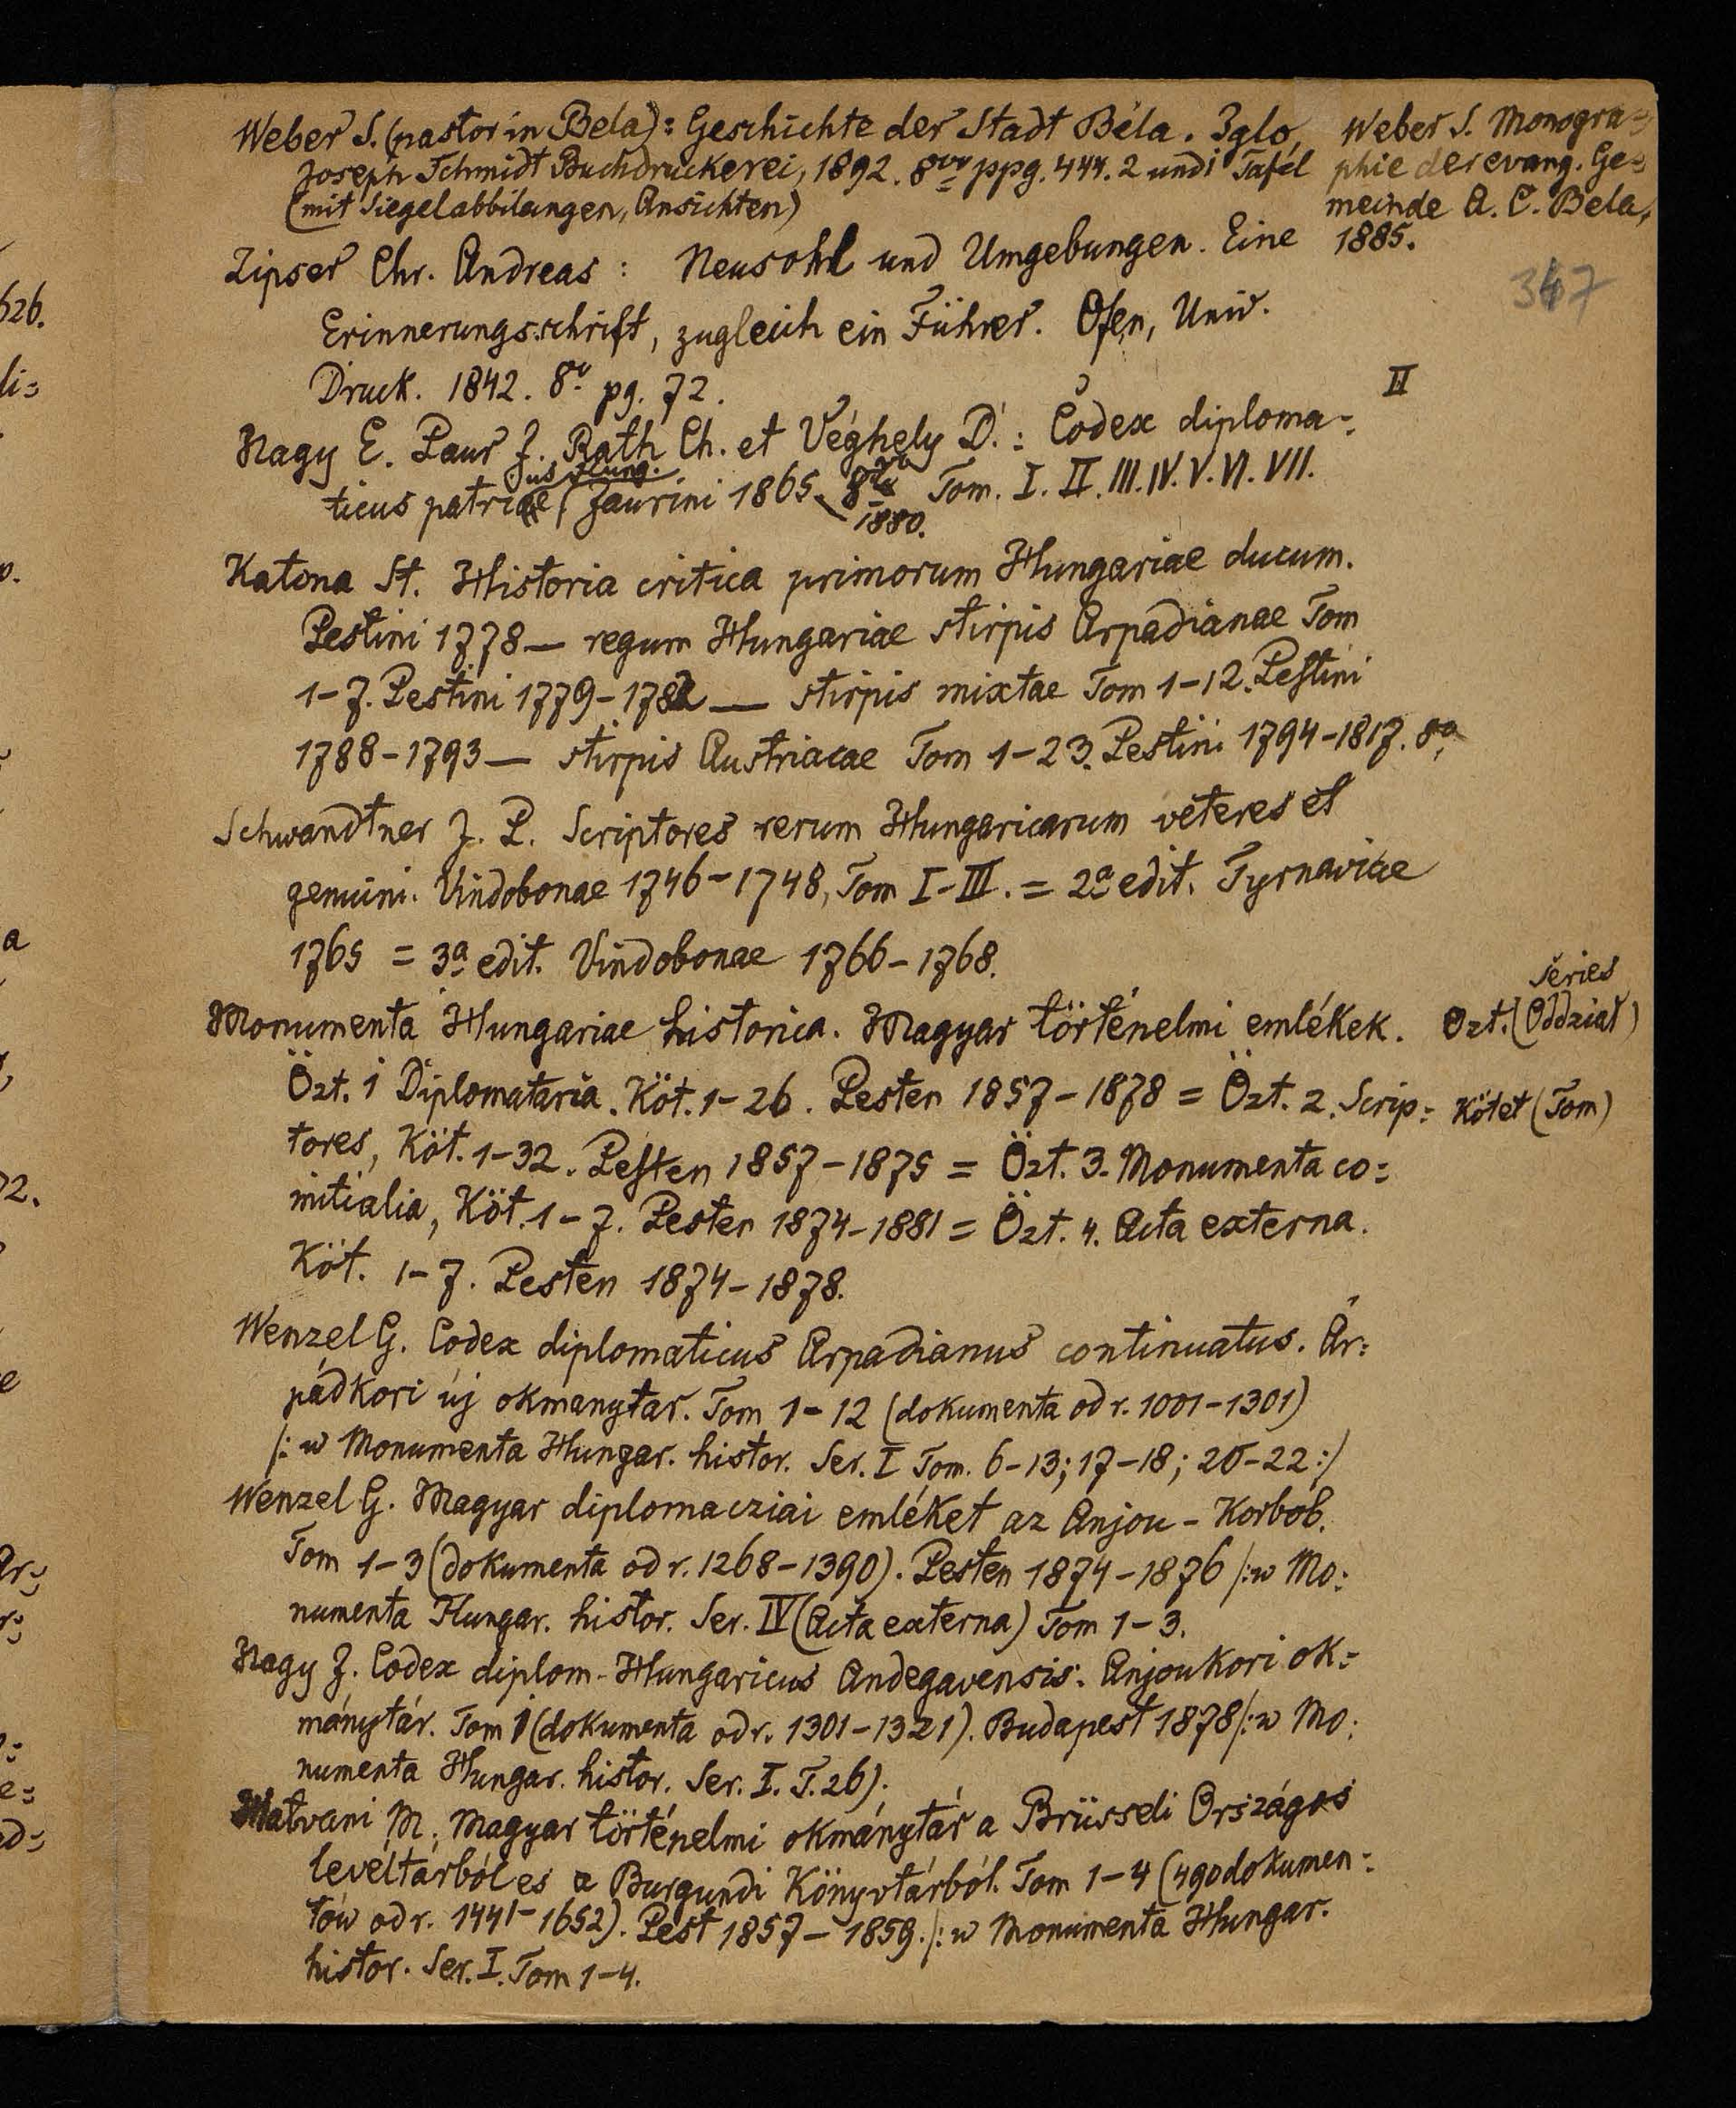 Weber S. (pastor in Bela): Geschichte der Stadt Béla. Iglo,
Joseph Schmidt Buchdruckerei, 1892. 8vo ppg. 444. 2 und 1 Tafel
(mit Siegelabbilungen, Ansichten)
Weber S. Monogra=
phie der evang. Ge=
meinde A. C. Bela,
1885.
347
Zipser Chr. Andreas: Neusohl und Umgebungen. Eine
Erinnerungsschrift, zugleich ein Führer. Ofen, Univ.
Druck. 1842. 8o pg. 72.
II
Nagy E. Paur J. Rath Ch. et Véghely D.: Codex diploma=
ticus patriae Jaurini 1865- 8vo Tom. I. II. III. IV. V. VI. VII.
jus Hung.
1880.
Katona St. Historia critica primorum Hungariae ducum.
Pestini 1778 — regum Hungariae stirpis Arpadianae Tom
1-7. Pestini 1779-1782 — stirpis mixtae Tom 1-12. Pestini
1788-1793 — stirpis Austriacae Tom 1-23. Pestini 1794-1817. 8o
Schwandtner J. P. Scriptores rerum Hungaricarum veteres et
genuini. Vindobonae 1746-1748, Tom I-III. = 2a edit. Tyrnaviae
1765 = 3a edit. Vindobonae 1766-1768.
Monumenta Hungariae historica. Magyar történelmi emlékek.
series
Ozt. (Oddział)
Özt. 1 Diplomataria. Köt. 1-26. Pesten 1857-1878 = Özt. 2. Scrip=
Kötet (Tom)
tores, Köt. 1-32. Pesten 1857-1875 = Özt. 3. Monumenta co=
mitialia, Köt. 1-7. Pesten 1874-1881 = Özt. 4. Acta externa.
Köt. 1-7. Pesten 1874-1878.
Wenzel G. Codex diplomaticus Arpadianus continuatus. Ár=
pádkori új okmanytar. Tom 1-12 (dokumenta od r. 1001-1301)
/: w Monumenta Hungar. histor. Ser. I Tom. 6-13; 17-18; 20-22 :/
Wenzel G. Magyar diplomacziai emléket az Anjou-Korból.
Tom 1-3 (dokumenta od r. 1268-1390). Pesten 1874-1876 /: w Mo=
numenta Hungar. histor. Ser. IV (Acta externa) Tom 1-3.
Nagy J. Codex diplom. Hungaricus Andegavensis. Anjoukori ok=
mánytár. Tom 1 (dokumenta od r. 1301-1321). Budapest 1878 /: w Mo=
numenta Hungar. histor. Ser. I. T. 26).
Hatvani M. Magyar történelmi okmánytár a Brüsseli Országos
levéltárból es a Burgundi Könyvtárból. Tom 1-4 (490 dokumen=
tów od r. 1441-1652). Pest 1857-1859. /: w Monumenta Hungar.
histor. Ser. I. Tom 1-4.